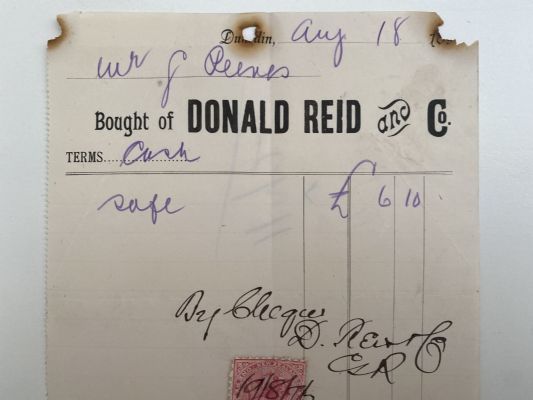 Dunedin, Aug 18
Mr J Reeves
Bought of DONALD REID and Co.
TERMS.... Cash
safe £ 6 10
By Cheque
D. Reid & Co